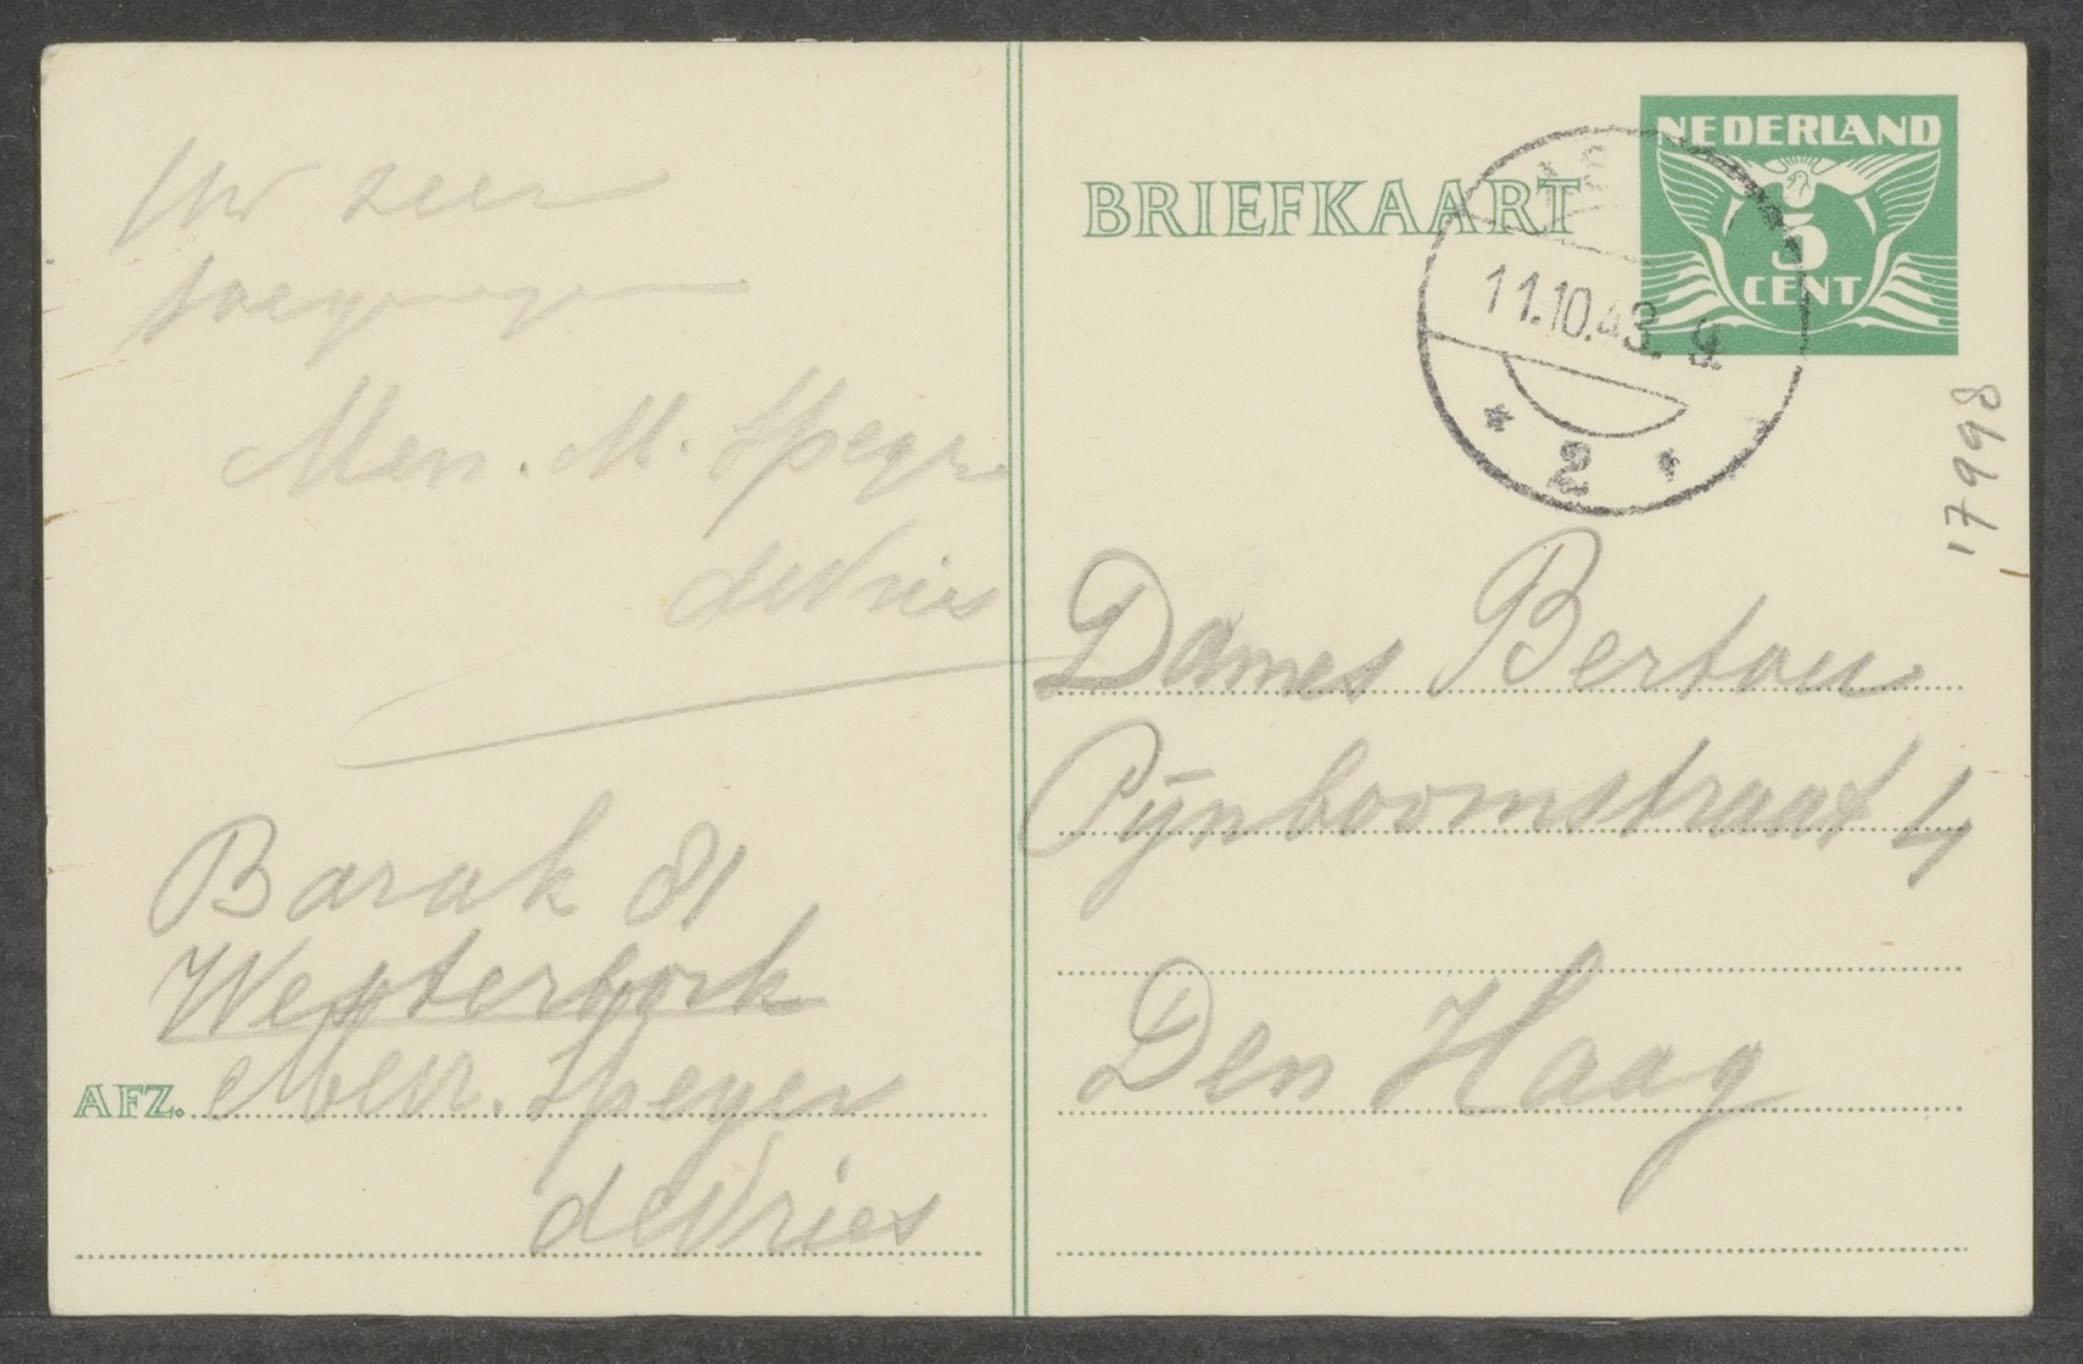 Uw zeer
toegenegen
Mevr. M. Speyer
de Vries
Barak 81
Westerbork
AFZ. Mevr. Speyer
de Vries
BRIEFKAART
NEDERLAND
5
CENT
11.10.43. 9.
2
17998
Dames Bertou
Pijnboomstraat 4
Den Haag